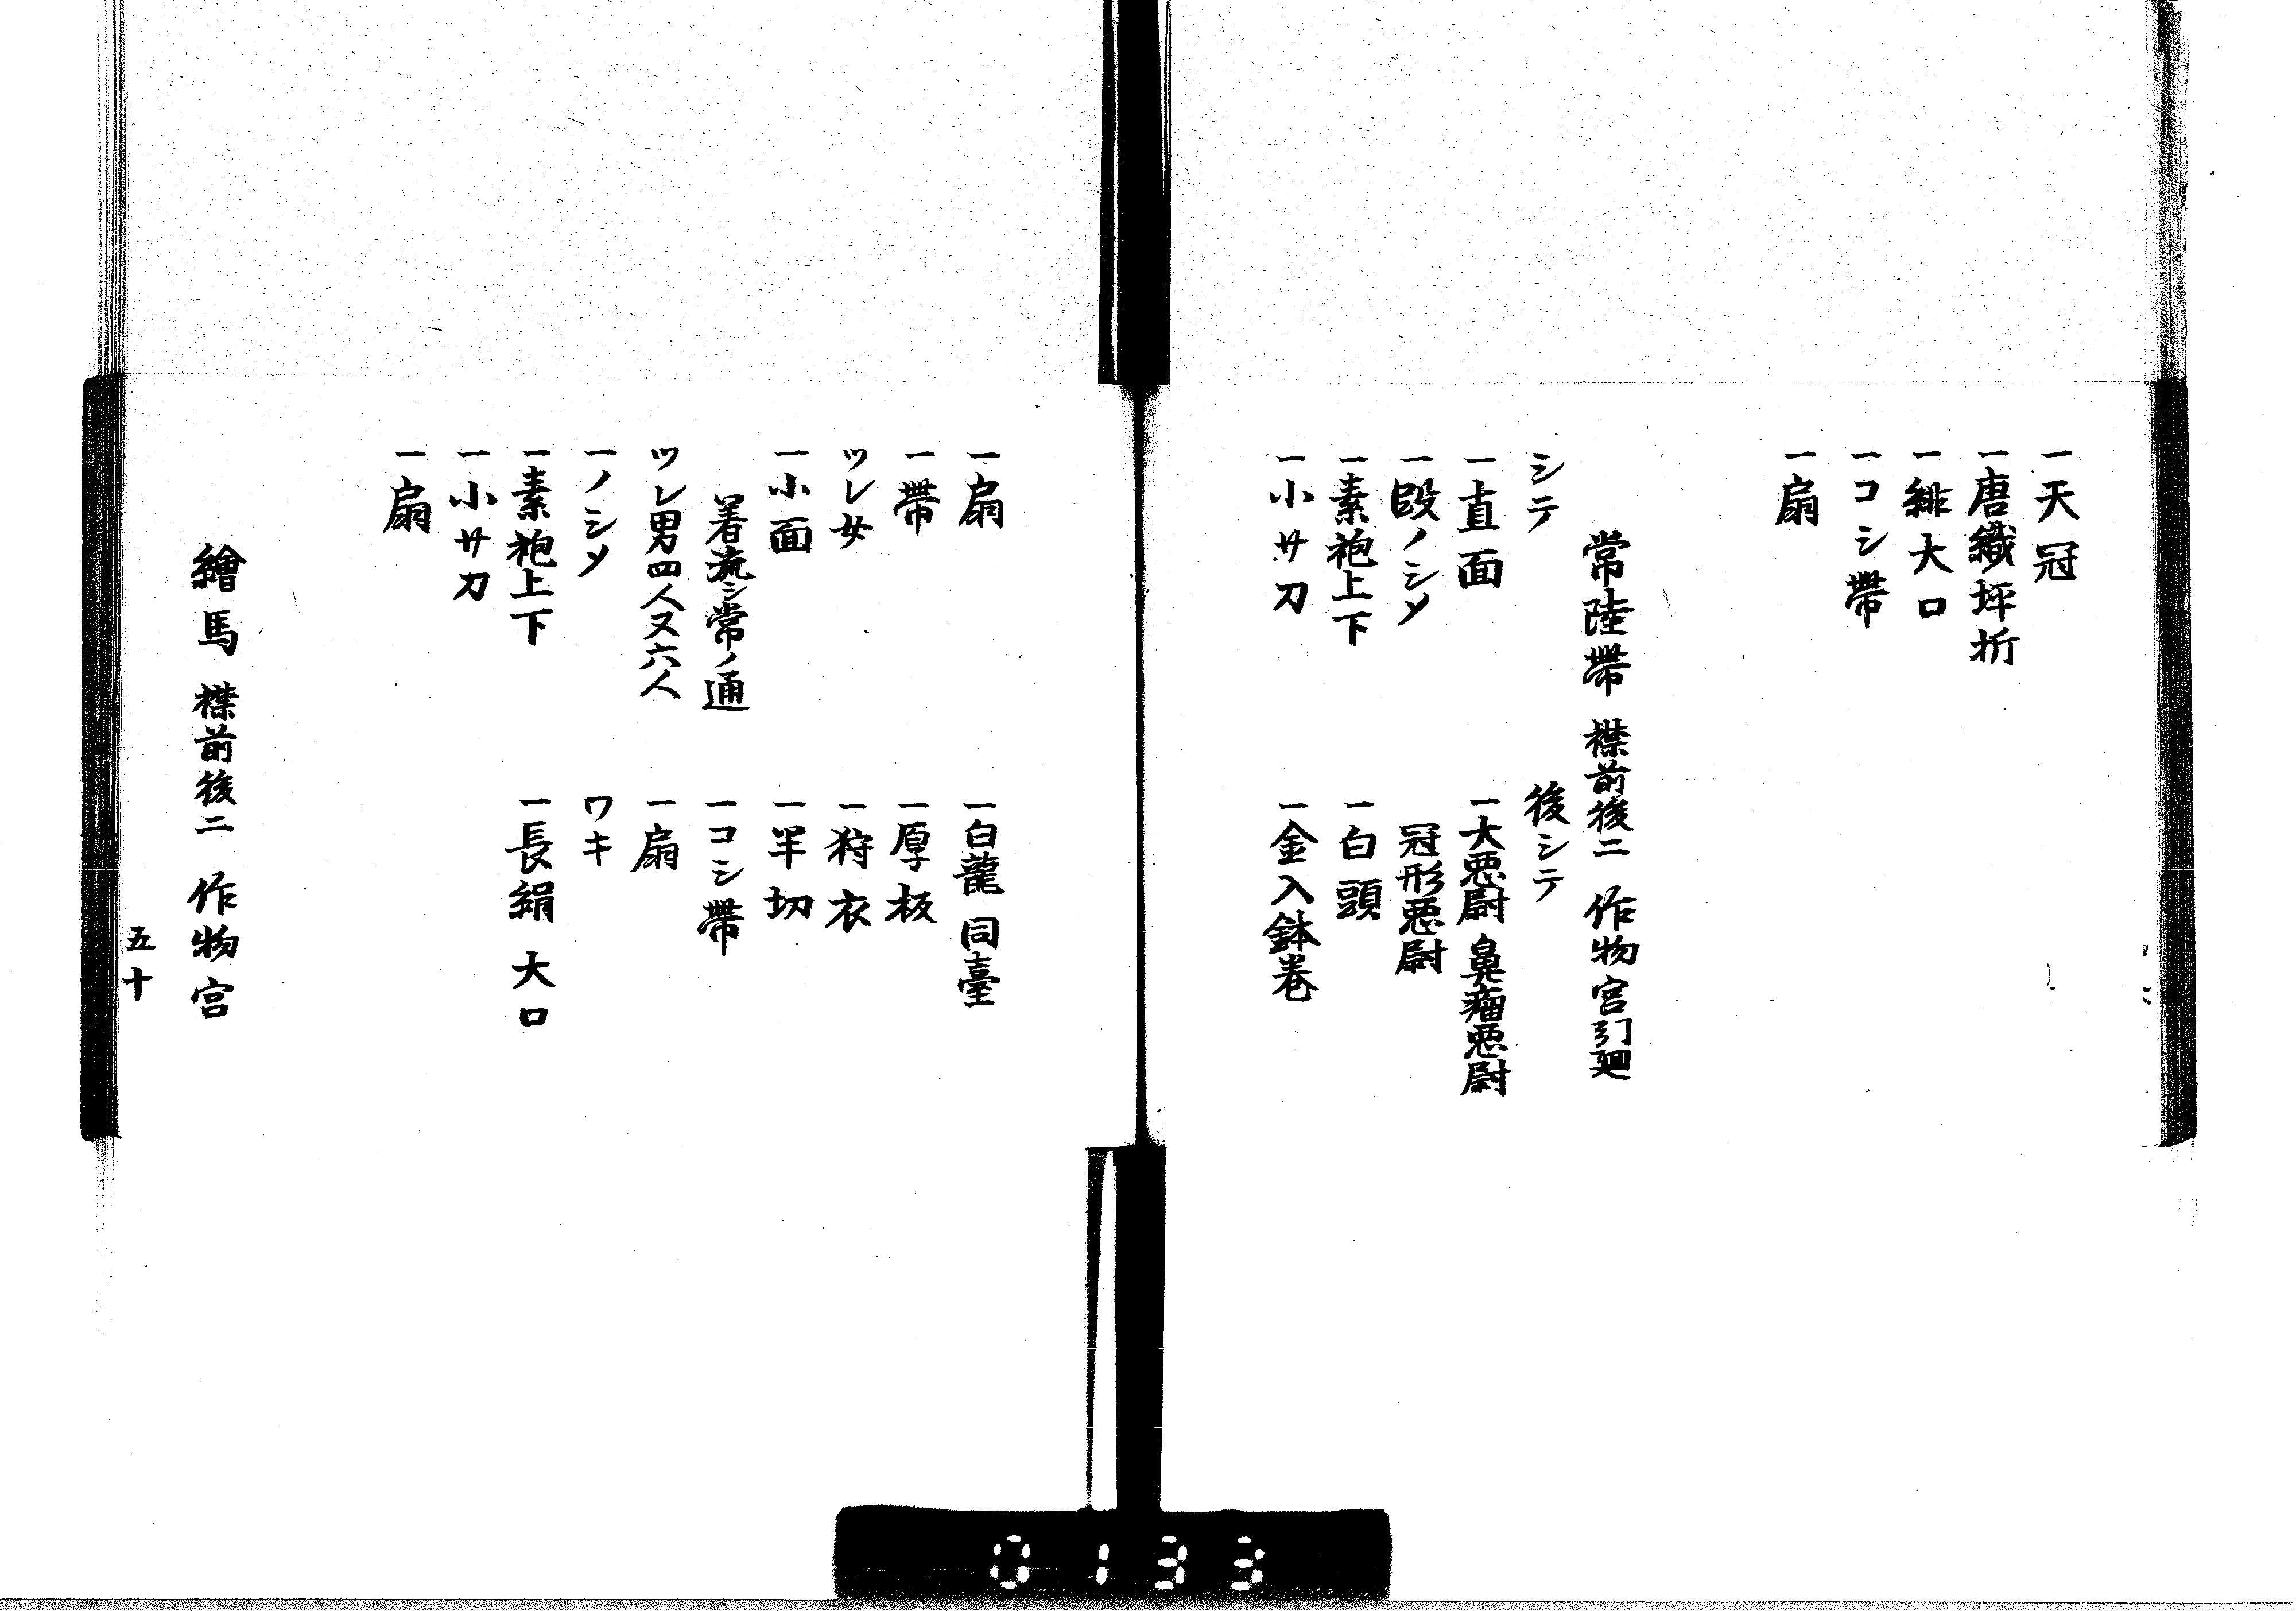 一天冠
一唐織坪折
一緋大口
一コシ帶
一扇
常陸帶 襟前後ニ 作物宮引廻
シテ
一直面
一段ノシメ
一素袍上下
一小サ刀
後シテ
一大悪尉 鼻瘤悪尉
冠形悪尉
一白頭
一金入鉢巻
一扇
一帶
ツレ女
一小面
着流シ常ノ通
ツレ男四人又六人
一ノシメ
一素袍上下
一小サ刀
一扇
一白龍 同臺
一厚板
一狩衣
一半切
一コシ帶
一扇
ワキ
一長絹 大口
繪馬 襟前後ニ 作物宮
五十
0133